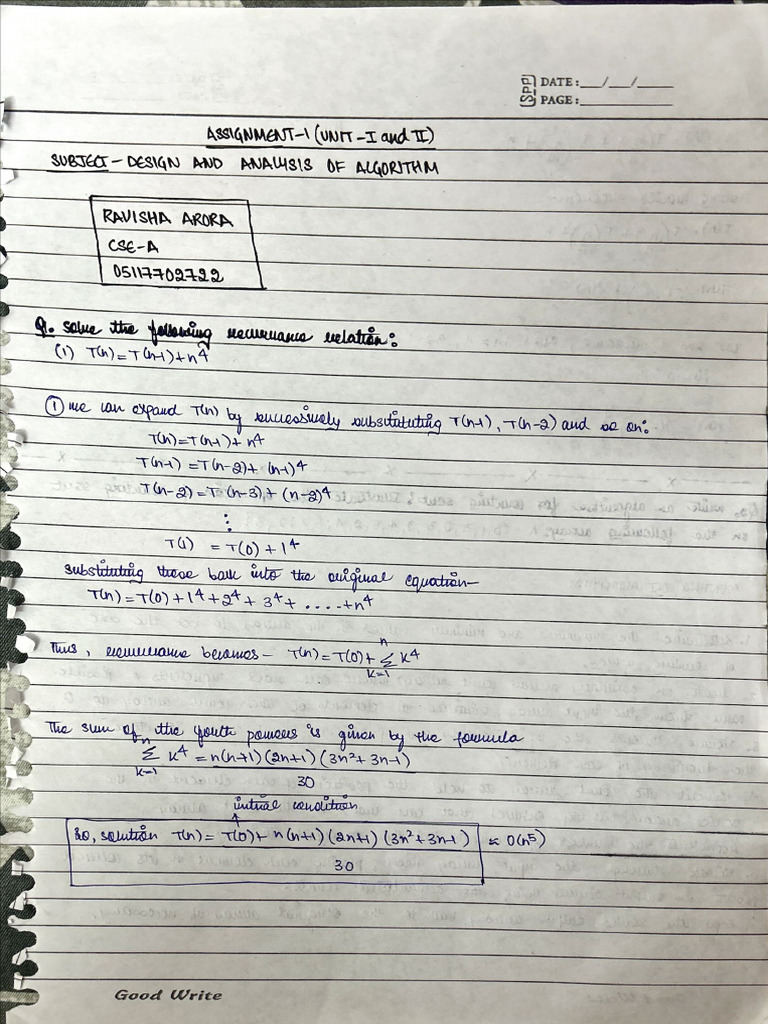 SPP DATE: __/__/____
PAGE: ____________
ASSIGNMENT-1 (UNIT-I and II)
SUBJECT - DESIGN AND ANALYSIS OF ALGORITHM
RAVISHA ARORA
CSE-A
05117702722
Q1. Solve the following recurrence relation:
(1) T(n) = T(n-1) + n⁴
① we can expand T(n) by successively substituting T(n-1), T(n-2) and so on:
T(n) = T(n-1) + n⁴
T(n-1) = T(n-2) + (n-1)⁴
T(n-2) = T(n-3) + (n-2)⁴
⋮
T(1) = T(0) + 1⁴
substituting these back into the original equation-
T(n) = T(0) + 1⁴ + 2⁴ + 3⁴ + ..... + n⁴
Thus, recurrence becomes - T(n) = T(0) + n∑k=1 k⁴
The sum of the fourth powers is given by the formula
n∑k=1 k⁴ = n(n+1)(2n+1)(3n²+3n-1)
30
initial condition
So, solution T(n) = T(0) + n(n+1)(2n+1)(3n²+3n-1) ≈ O(n⁵)
30
Good Write